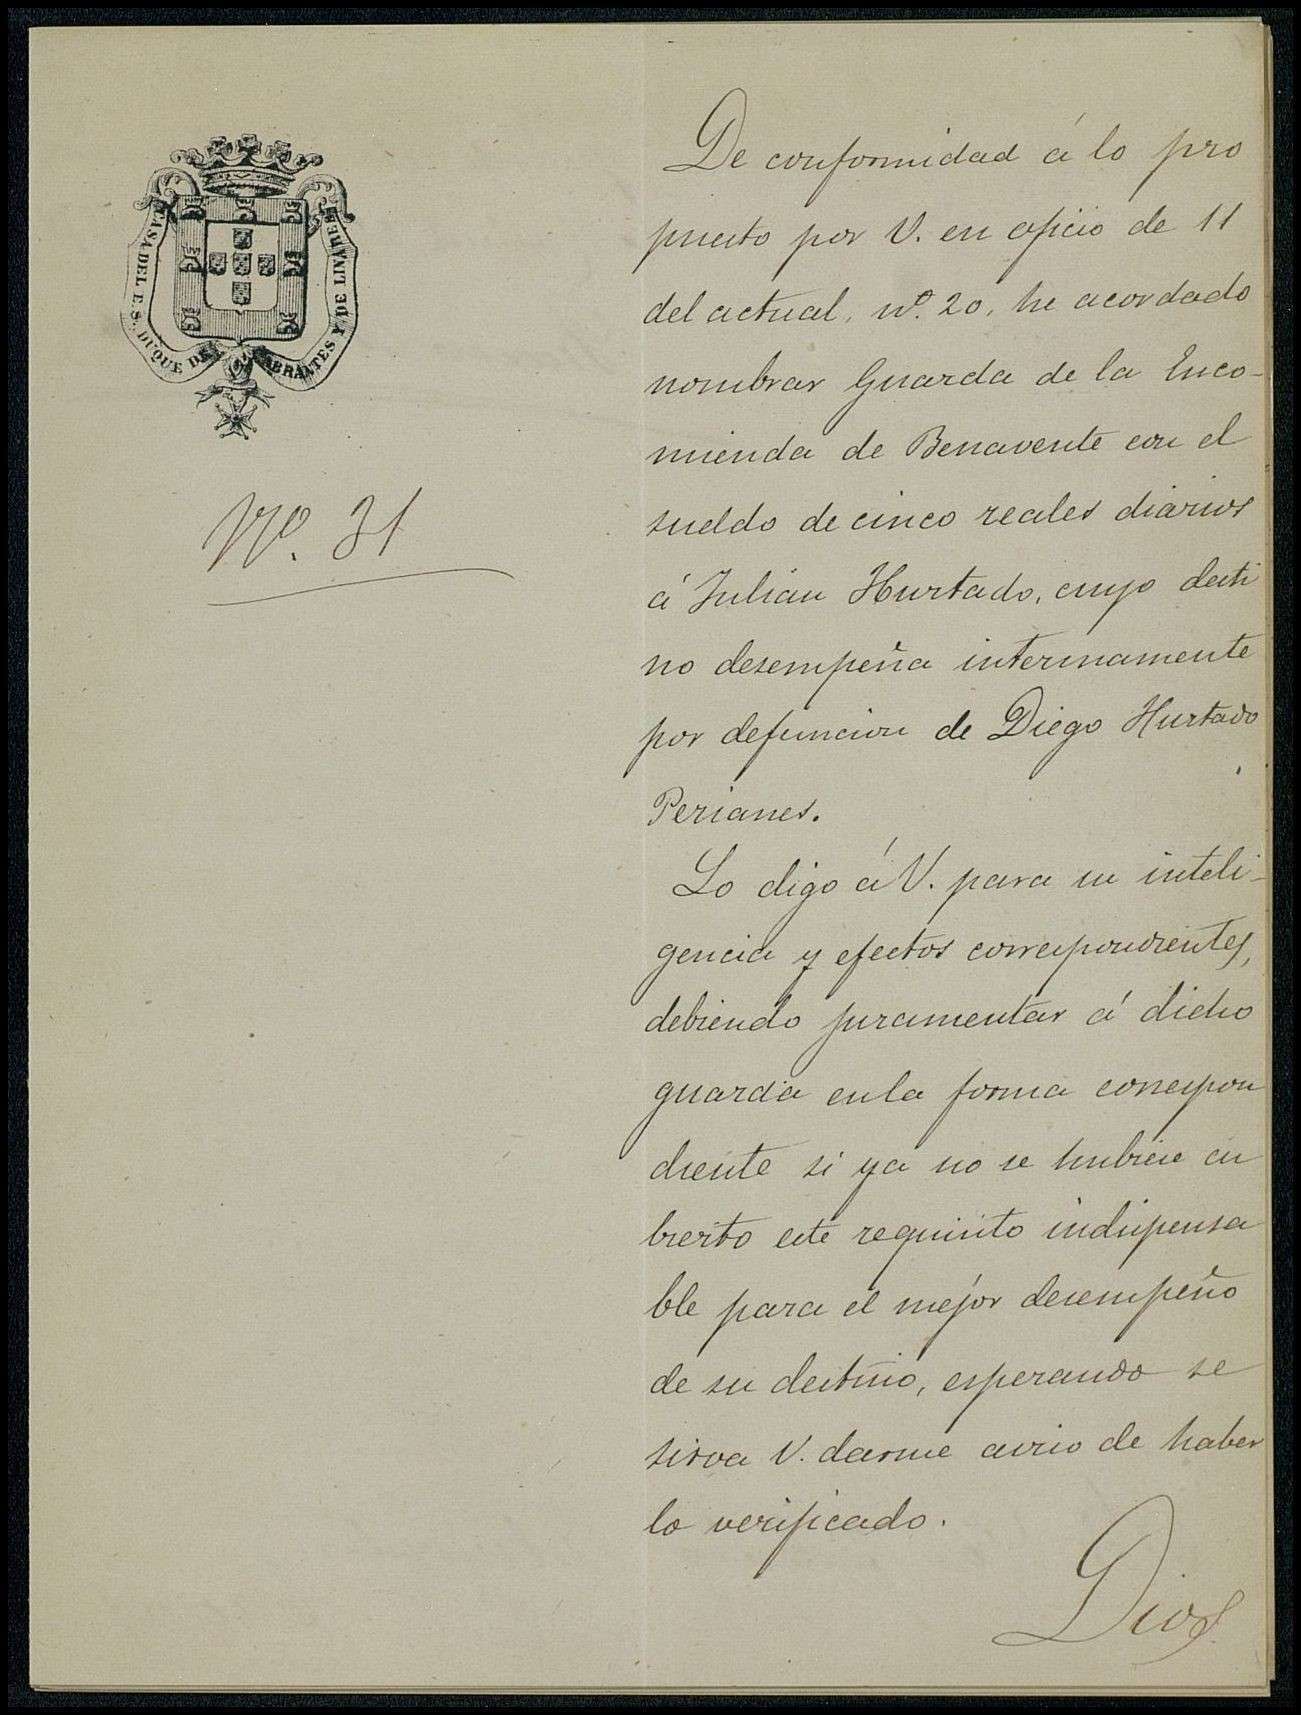 CASA DEL E. S. DUQUE DE ABRANTES Y DE LINARES
Nº. 31
De conformidad á lo pro
puesto por V. en oficio de 11
del actual, nº. 20, he acordado
nombrar Guarda de la Enco-
mienda de Benavente con el
sueldo de cinco reales diarios
á Julián Hurtado, cuyo desti
no desempeña interinamente
por defuncion de Diego Hurtado
Perianes.
Lo digo á V. para su inteli-
gencia y efectos correspondientes,
debiendo juramentar á dicho
guarda en la forma correspon
diente si ya no se hubiese cu
bierto este requisito indispensa
ble para el mejor desempeño
de su destino, esperando se
sirva V. darme aviso de haber
lo verificado.
Dios